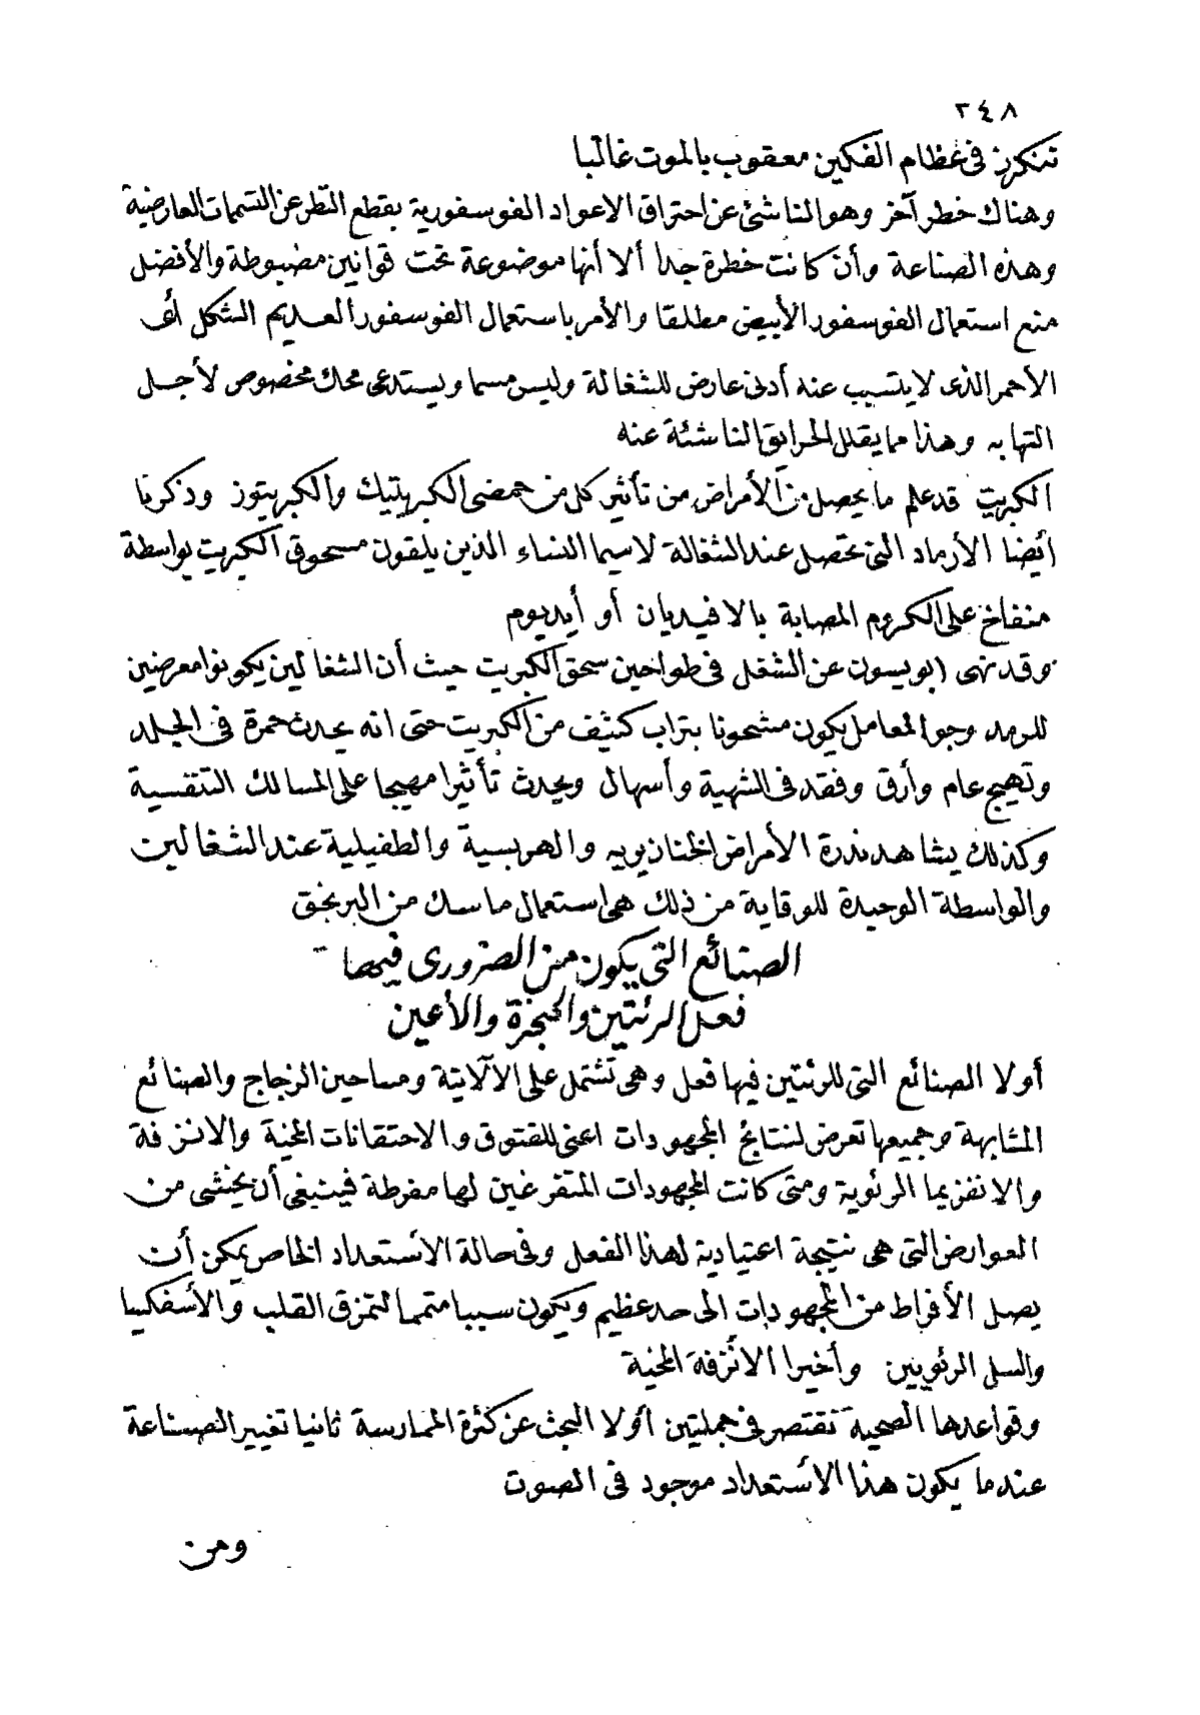 ٢٤٨
تنكرز فى عظام الفكين معقوب بالموت غالبا
وهناك خطر آخر وهو الناشئ عن احتراق الاعواد الفوسفورية بقطع النظر عن التسمات العارضية
وهذه الصناعة وأن كانت خطرة جدا ألا أنها موضوعة تحت قوانين مضبوطة والأفضل
منع استعمال الفوسفور الأبيض مطلقا والأمر باستعمال الفوسفور العديم الشكل أى
الأحمر الذى لا يتسبب عنه أدنى عارض للشغالة وليس مسما ويستدعى محك مخصوص لأجل
التهابه وهذا مما يقلل الحرايق الناشئة عنه
الكبريت قد علم ما يحصل من الأمراض من تأثير كل من حمضى الكبريتيك والكبريتوز وذكرنا
أيضا الأرماد التى تحصل عند الشغالة لاسيما النساء الذين يلقون مسحوق الكبريت بواسطة
منفاخ على الكروم المصابة بالافيديان أو أيديوم
وقد نهى (بويسون عن الشغل فى طواحين سحق الكبريت حيث أن الشغالين يكونوا معرضين
للرمد وجو المعامل يكون مشحونا بتراب كثيف من الكبريت حتى انه يحدث حمرة فى الجلد
وتهيج عام وأرق وفقد فى الشهية وأسهال ويحدث تأثيرا مهيجا على المسالك التنفسية
وكذلك يشاهد ندرة الأمراض الخنازيريه والهربسية والطفيلية عند الشغالين
والواسطة الوحيدة للوقاية من ذلك هى استعمال ماسك من البرنجق
الصنائع التى يكون من الضرورى فيها
فعل الرئتين والحنجرة والأعين
أولا الصنائع التى للرئتين فيها فعل وهى تشتمل على الآلاتية ومساحين الزجاج والصنائع
المشابهة وجميعها تعرض لنتائج المجهودات اعنى للفتوق والاحتقانات المخية والانزفة
والانفزيما الرئوية ومتى كانت المجهودات المتفرغين لها مفرطة فينبغى أن يخشى من
العوارض التى هى نتيجة اعتيادية لهذا الفعل وفى حالة الأستعداد الخاص يمكن أن
يصل الأفراط من المجهودات الى حد عظيم ويكون سببا متمما لتمزق القلب والأسفكسيا
والسل الرئويين وأخيرا الأنزفة المخية
وقواعدها الصحية تقتصر فى جملتين أولا البحث عن كثرة الممارسة ثانيا تغيير الصناعة
عندما يكون هذا الأستعداد موجود فى الصوت
ومن